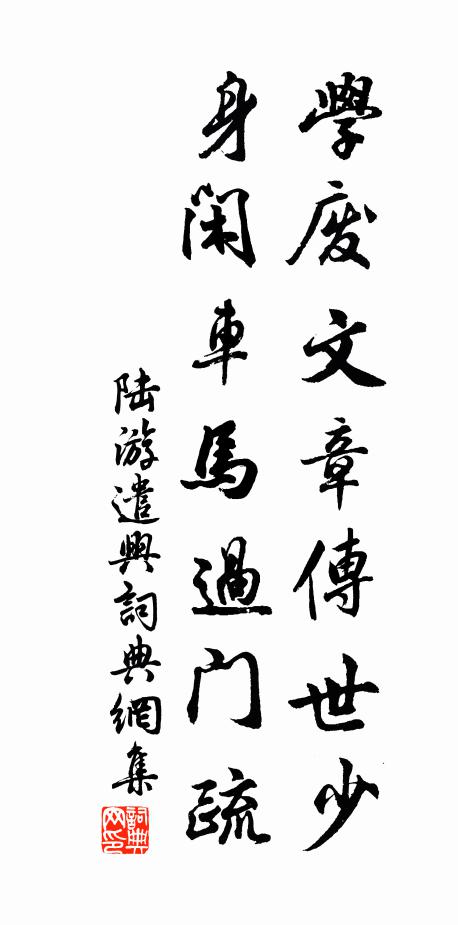 學廢文章傳世少
身閑車馬過門疏
陸游遣興詞典網集
詞典网印